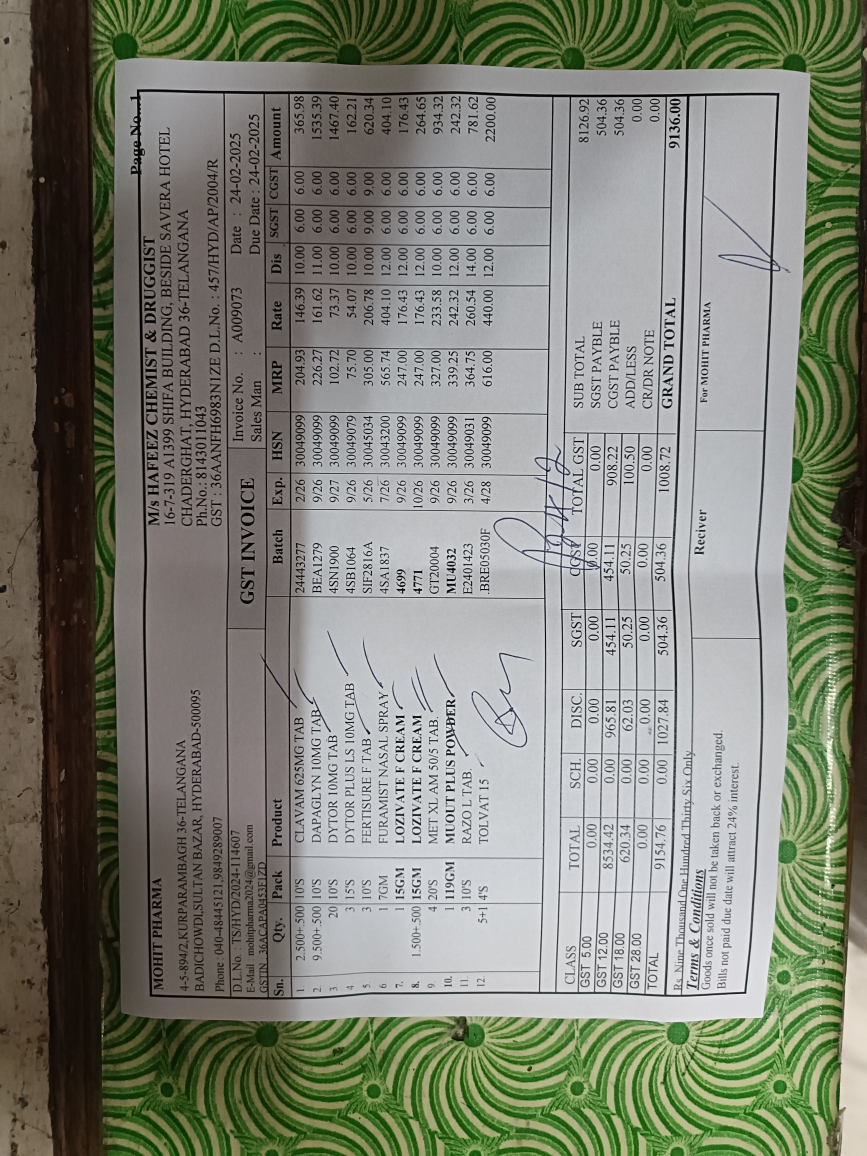 Page No...1
MOHIT PHARMA
4-5-894/2,KURPARAMBAGH 36-TELANGANA
BADICHOWDI,SULTAN BAZAR, HYDERABAD-500095
Phone : 040-48445121,9849289007
D.L.No. : TS/HYD/2024-114607
E-Mail : mohitpharma2024@gmail.com
GSTIN 36ACAPA0453F1ZD
M/s HAFEEZ CHEMIST & DRUGGIST
16-7-319 A1399 SHIFA BUILDING, BESIDE SAVERA HOTEL
CHADERGHAT, HYDERABAD 36-TELANGANA
Ph.No.: 8143011043
GST : 36AANFH6983N1ZE D.L.No. : 457/HYD/AP/2004/R
GST INVOICE
Invoice No. : A009073 Date : 24-02-2025
Sales Man : Due Date : 24-02-2025
Sn. Qty. Pack Product Batch Exp. HSN MRP Rate Dis SGST CGST Amount
1. 2.500+.500 10'S CLAVAM 625MG TAB 24443277 2/26 30049099 204.93 146.39 10.00 6.00 6.00 365.98
2. 9.500+.500 10'S DAPAGLYN 10MG TAB BEA1279 9/26 30049099 226.27 161.62 11.00 6.00 6.00 1535.39
3 20 10'S DYTOR 10MG TAB 4SN1900 9/27 30049099 102.72 73.37 10.00 6.00 6.00 1467.40
4 3 15'S DYTOR PLUS LS 10MG TAB 4SB1064 9/26 30049079 75.70 54.07 10.00 6.00 6.00 162.21
5 3 10'S FERTISURE F TAB SIF2816A 5/26 30045034 305.00 206.78 10.00 9.00 9.00 620.34
6 1 7GM FURAMIST NASAL SPRAY 4SA1837 7/26 30043200 565.74 404.10 12.00 6.00 6.00 404.10
7. 1 15GM LOZIVATE F CREAM 4699 9/26 30049099 247.00 176.43 12.00 6.00 6.00 176.43
8. 1.500+.500 15GM LOZIVATE F CREAM 4771 10/26 30049099 247.00 176.43 12.00 6.00 6.00 264.65
9. 4 20'S MET XL AM 50/5 TAB. GT20004 9/26 30049099 327.00 233.58 10.00 6.00 6.00 934.32
10. 1 119GM MUOUT PLUS POWDER MU4032 9/26 30049099 339.25 242.32 12.00 6.00 6.00 242.32
11. 3 10'S RAZO L TAB. E2401423 3/26 30049031 364.75 260.54 14.00 6.00 6.00 781.62
12. 5+1 4'S TOLVAT 15 .BRE05030F 4/28 30049099 616.00 440.00 12.00 6.00 6.00 2200.00
CLASS TOTAL SCH. DISC. SGST CGST TOTAL GST
GST 5.00 0.00 0.00 0.00 0.00 0.00 0.00
GST 12.00 8534.42 0.00 965.81 454.11 454.11 908.22
GST 18.00 620.34 0.00 62.03 50.25 50.25 100.50
GST 28.00 0.00 0.00 0.00 0.00 0.00 0.00
TOTAL 9154.76 0.00 1027.84 504.36 504.36 1008.72
SUB TOTAL 8126.92
SGST PAYBLE 504.36
CGST PAYBLE 504.36
ADD/LESS 0.00
CR/DR NOTE 0.00
GRAND TOTAL 9136.00
Rs. Nine Thousand One Hundred Thirty Six Only
Terms & Conditions
Goods once sold will not be taken back or exchanged.
Bills not paid due date will attract 24% interest.
Reciver
For MOHIT PHARMA